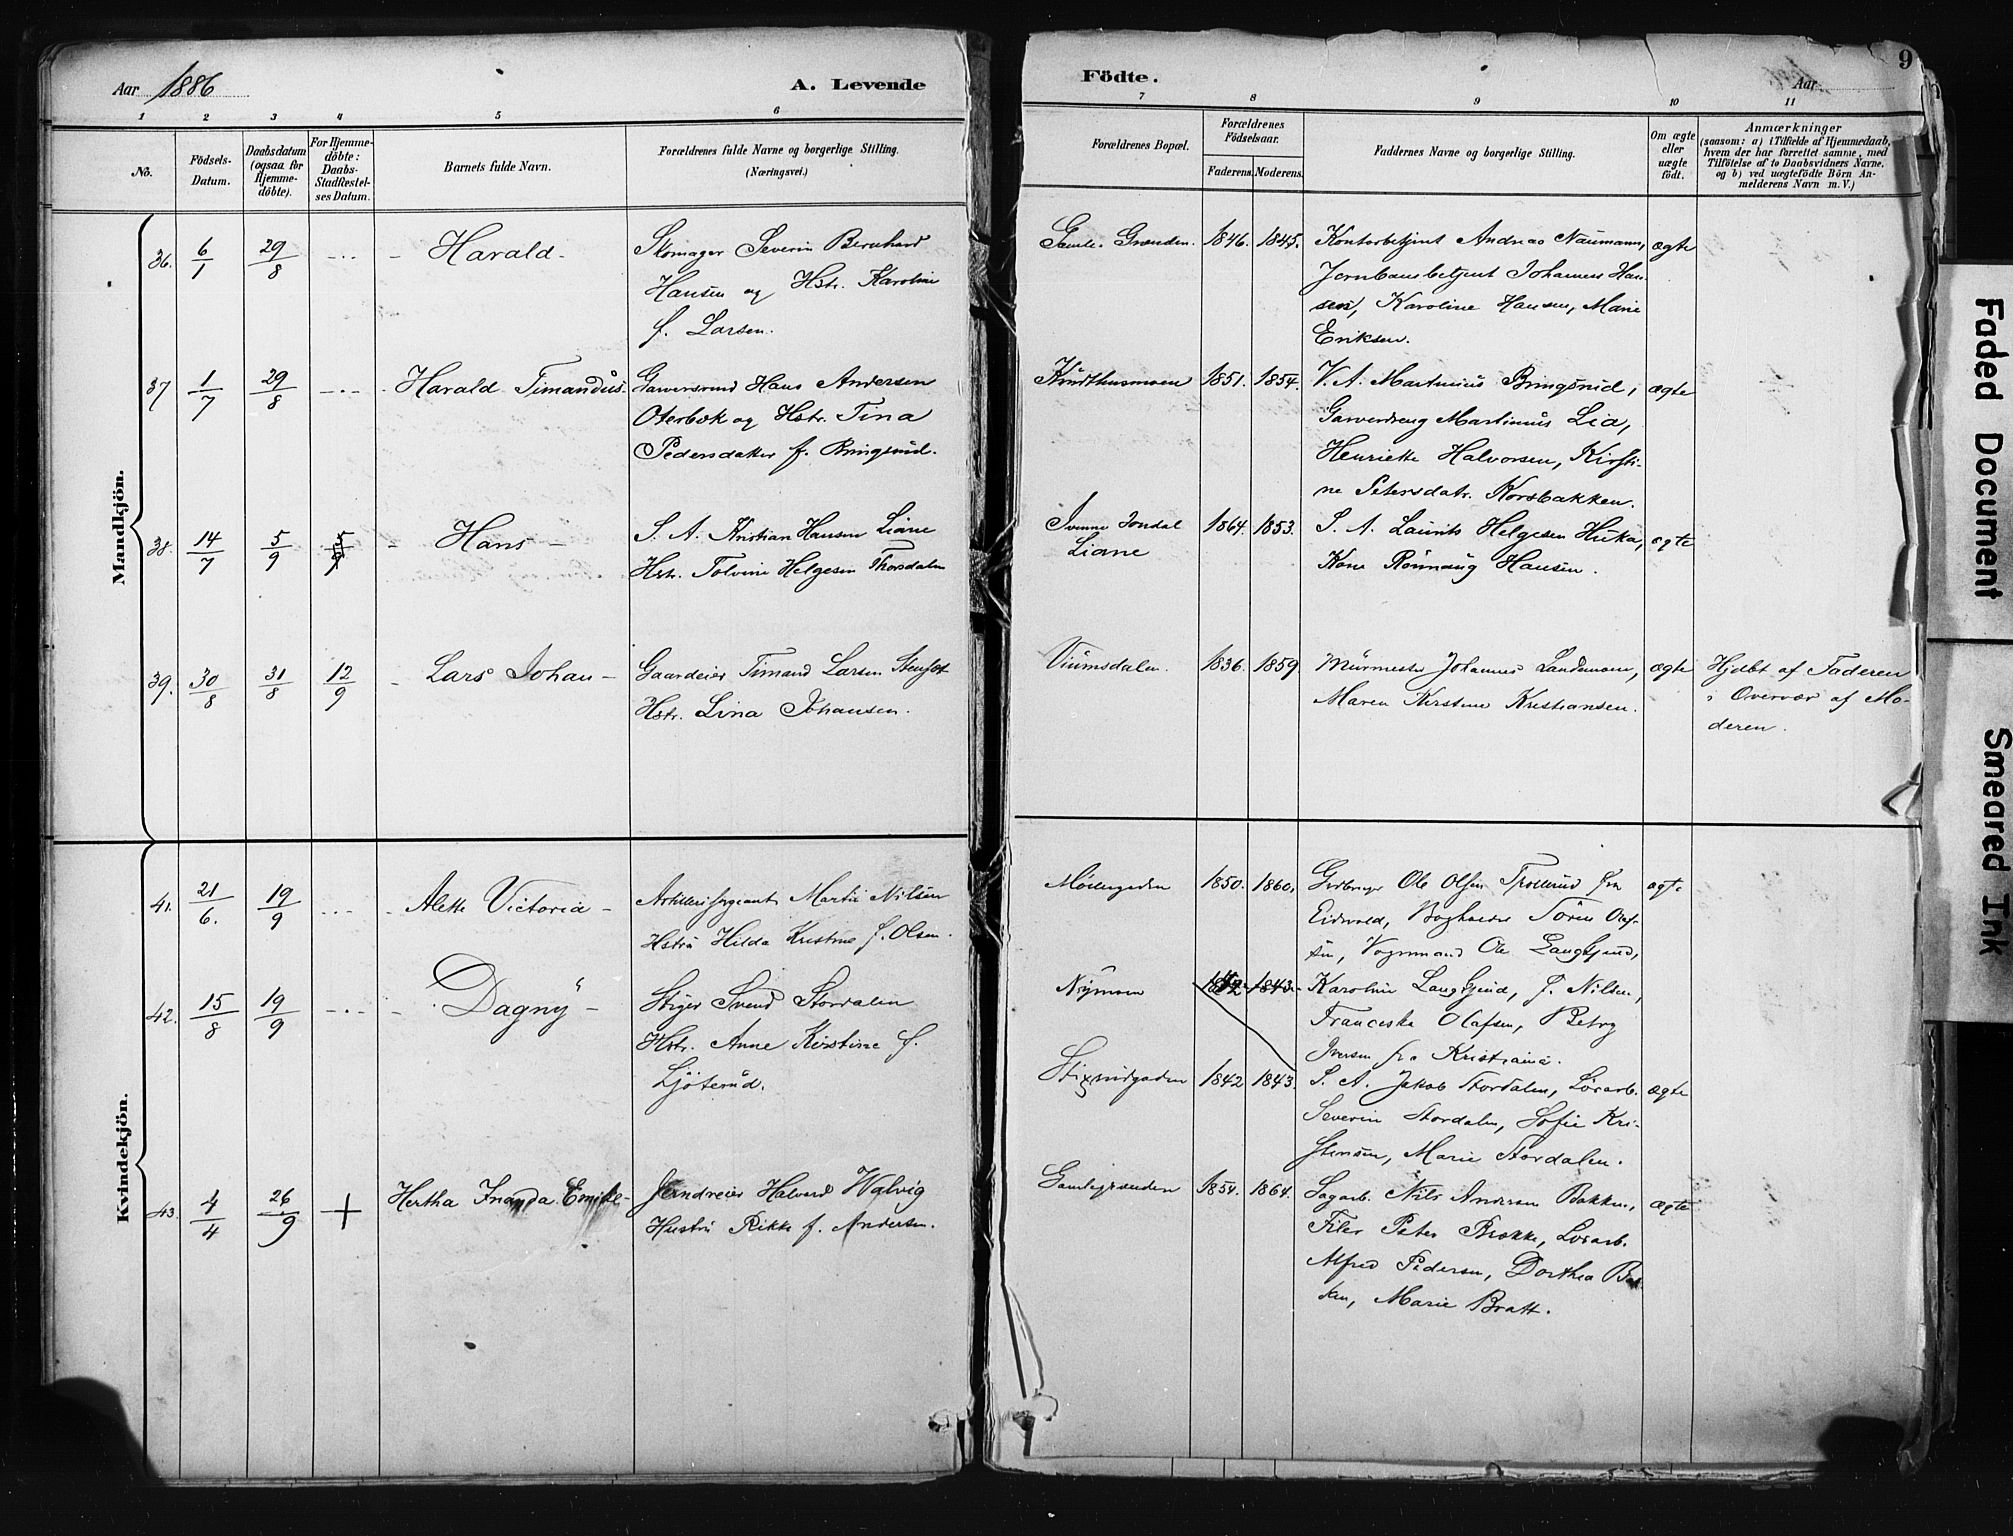 9
Aar 1886
A. Levende
Födte.
Aar
1 2 3 4 5 6 7 8 9 10 11
No.
Födsels-
Datum.
Daabsdatum
(ogsaa for
Hjemme-
döbte).
For Hjemme-
döbte:
Daabs-
Stadfæstel-
ses Datum.
Barnets fulde Navn.
Forældrenes fulde Navne og borgerlige Stilling.
(Næringsvei.)
Forældrenes Bopæl.
Forældrenes
Födselsaar.
Faderens. Moderens.
Faddernes Navne og borgerlige Stilling.
Om ægte
eller
uægte
födt.
Anmærkninger
(saasom: a) i Tilfælde af Hjemmedaab,
hvem der har forrettet samme, med
Tilföielse af to Daabsvidners Navne,
og b) ved uægtefödte Börn An-
melderens Navn m. V.)
Mandkjön.
36. 6/1 29/8 Harald
Skomager Severin Bernhard
Hansen og Hstr. Karoline
f. Larsen.
Gamle-Grænden. 1846. 1845.
Kontorbetjent Andreas Naumann,
Jernbanebetjent Johannes Han-
sen, Karoline Hansen, Marie
Eriksen.
ægte
37 1/7 29/8 Harald Timandus
Garversvend Hans Andersen
Oterbæk og Hstr. Tina
Pedersdatter f. Bringsrud.
Knudthusmoen 1851. 1854.
V. A. Martinius Bringsrud,
Garverdreng Martinius Lia,
Henriette Halvorsen, Kirsti-
ne Petersdatr. Korsbakken.
ægte
38. 14/7 5/9 Hans
S. A. Kristian Hansen Liane
Hstr. Tolvine Helgesen Thorsdalen
Jondal
Liane
1864. 1853.
S. A. Laurits Helgesen
Kone Rønnaug Hansen.
ægte
39. 30/8 31/8 12/9 Lars Johan
Gaardeier Timand Larsen
Hstr. Lina Johansen.
Viumsdalen. 1836. 1859
Murmester Johannes Landsmann,
Maren Kirstine Kristiansen.
ægte
Hjdbt af Faderen
i Overvær af Mo-
deren.
Kvindekjön.
41. 21/6. 19/9 Alette Victoria
Artillerisergeant Martin Nilsen
Hstru Hilda Kristine f. Olsen.
Møllergaden 1850. 1860.
Ole Olsen Trollerud fra
Eidsvold, Bogholder Søren Olaf-
sen, Vognmand Ole Langkjend,
ægte
42. 15/8 19/9 Dagny
Stiger Svend Stordalen
Hstr. Anne Kirstine f.
Ljøterud.
Nymoen 1842 1843.
Karoline Langkjend, f. Nilsen,
Franciska Olafsen, Betzy
Iversen fra Kristiania.
1842 1843.
S. A. Jakob Stordalen, Løsarb.
Severin Stordalen, Sofie Kri-
stensen, Marie Stordalen.
ægte
43. 4/4 26/9 + Hertha Inanda Emilie
Halvard Walvig
Hustru Rikke f. Andersen.
Gamlegrænden 1854. 1864.
Sagarb. Nils Andersen Bakken,
Filer Peter Brække, Løsarb.
Alfred Pedersen, Dorthea Bak-
ken, Marie Bratt.
ægte
Faded Document
Smeared Ink